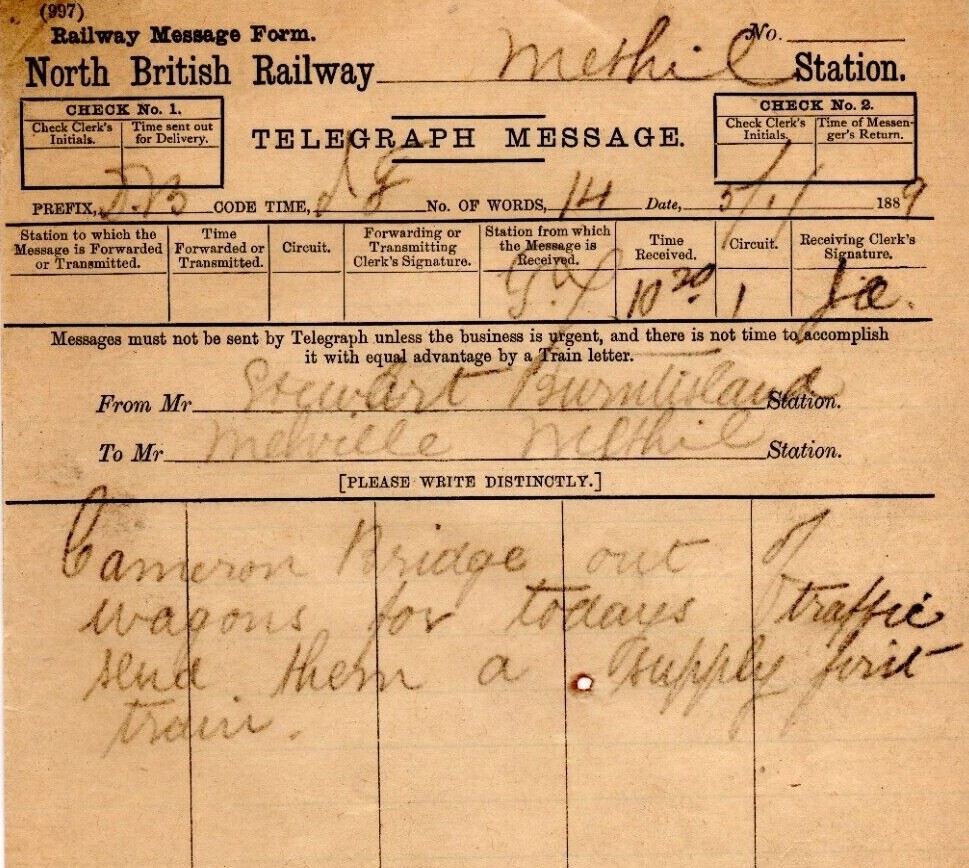 (997)
Railway Message Form.
No.
North British Railway Methil Station.
CHECK No. 1.
Check Clerk's Initials. Time sent out for Delivery.
TELEGRAPH MESSAGE.
CHECK No. 2.
Check Clerk's Initials. Time of Messenger's Return.
PREFIX, D.B CODE TIME, No. OF WORDS, 14 Date, 5/1/ 1889
Station to which the Message is Forwarded or Transmitted. Time Forwarded or Transmitted. Circuit. Forwarding or Transmitting Clerk's Signature. Station from which the Message is Received. Time Received. Circuit. Receiving Clerk's Signature.
10 20 1
Messages must not be sent by Telegraph unless the business is urgent, and there is not time to accomplish
it with equal advantage by a Train letter.
From Mr Stewart Burntisland Station.
To Mr Melville Methil Station.
[PLEASE WRITE DISTINCTLY.]
Cameron Bridge out of
wagons for todays traffic
send them a supply first
train.